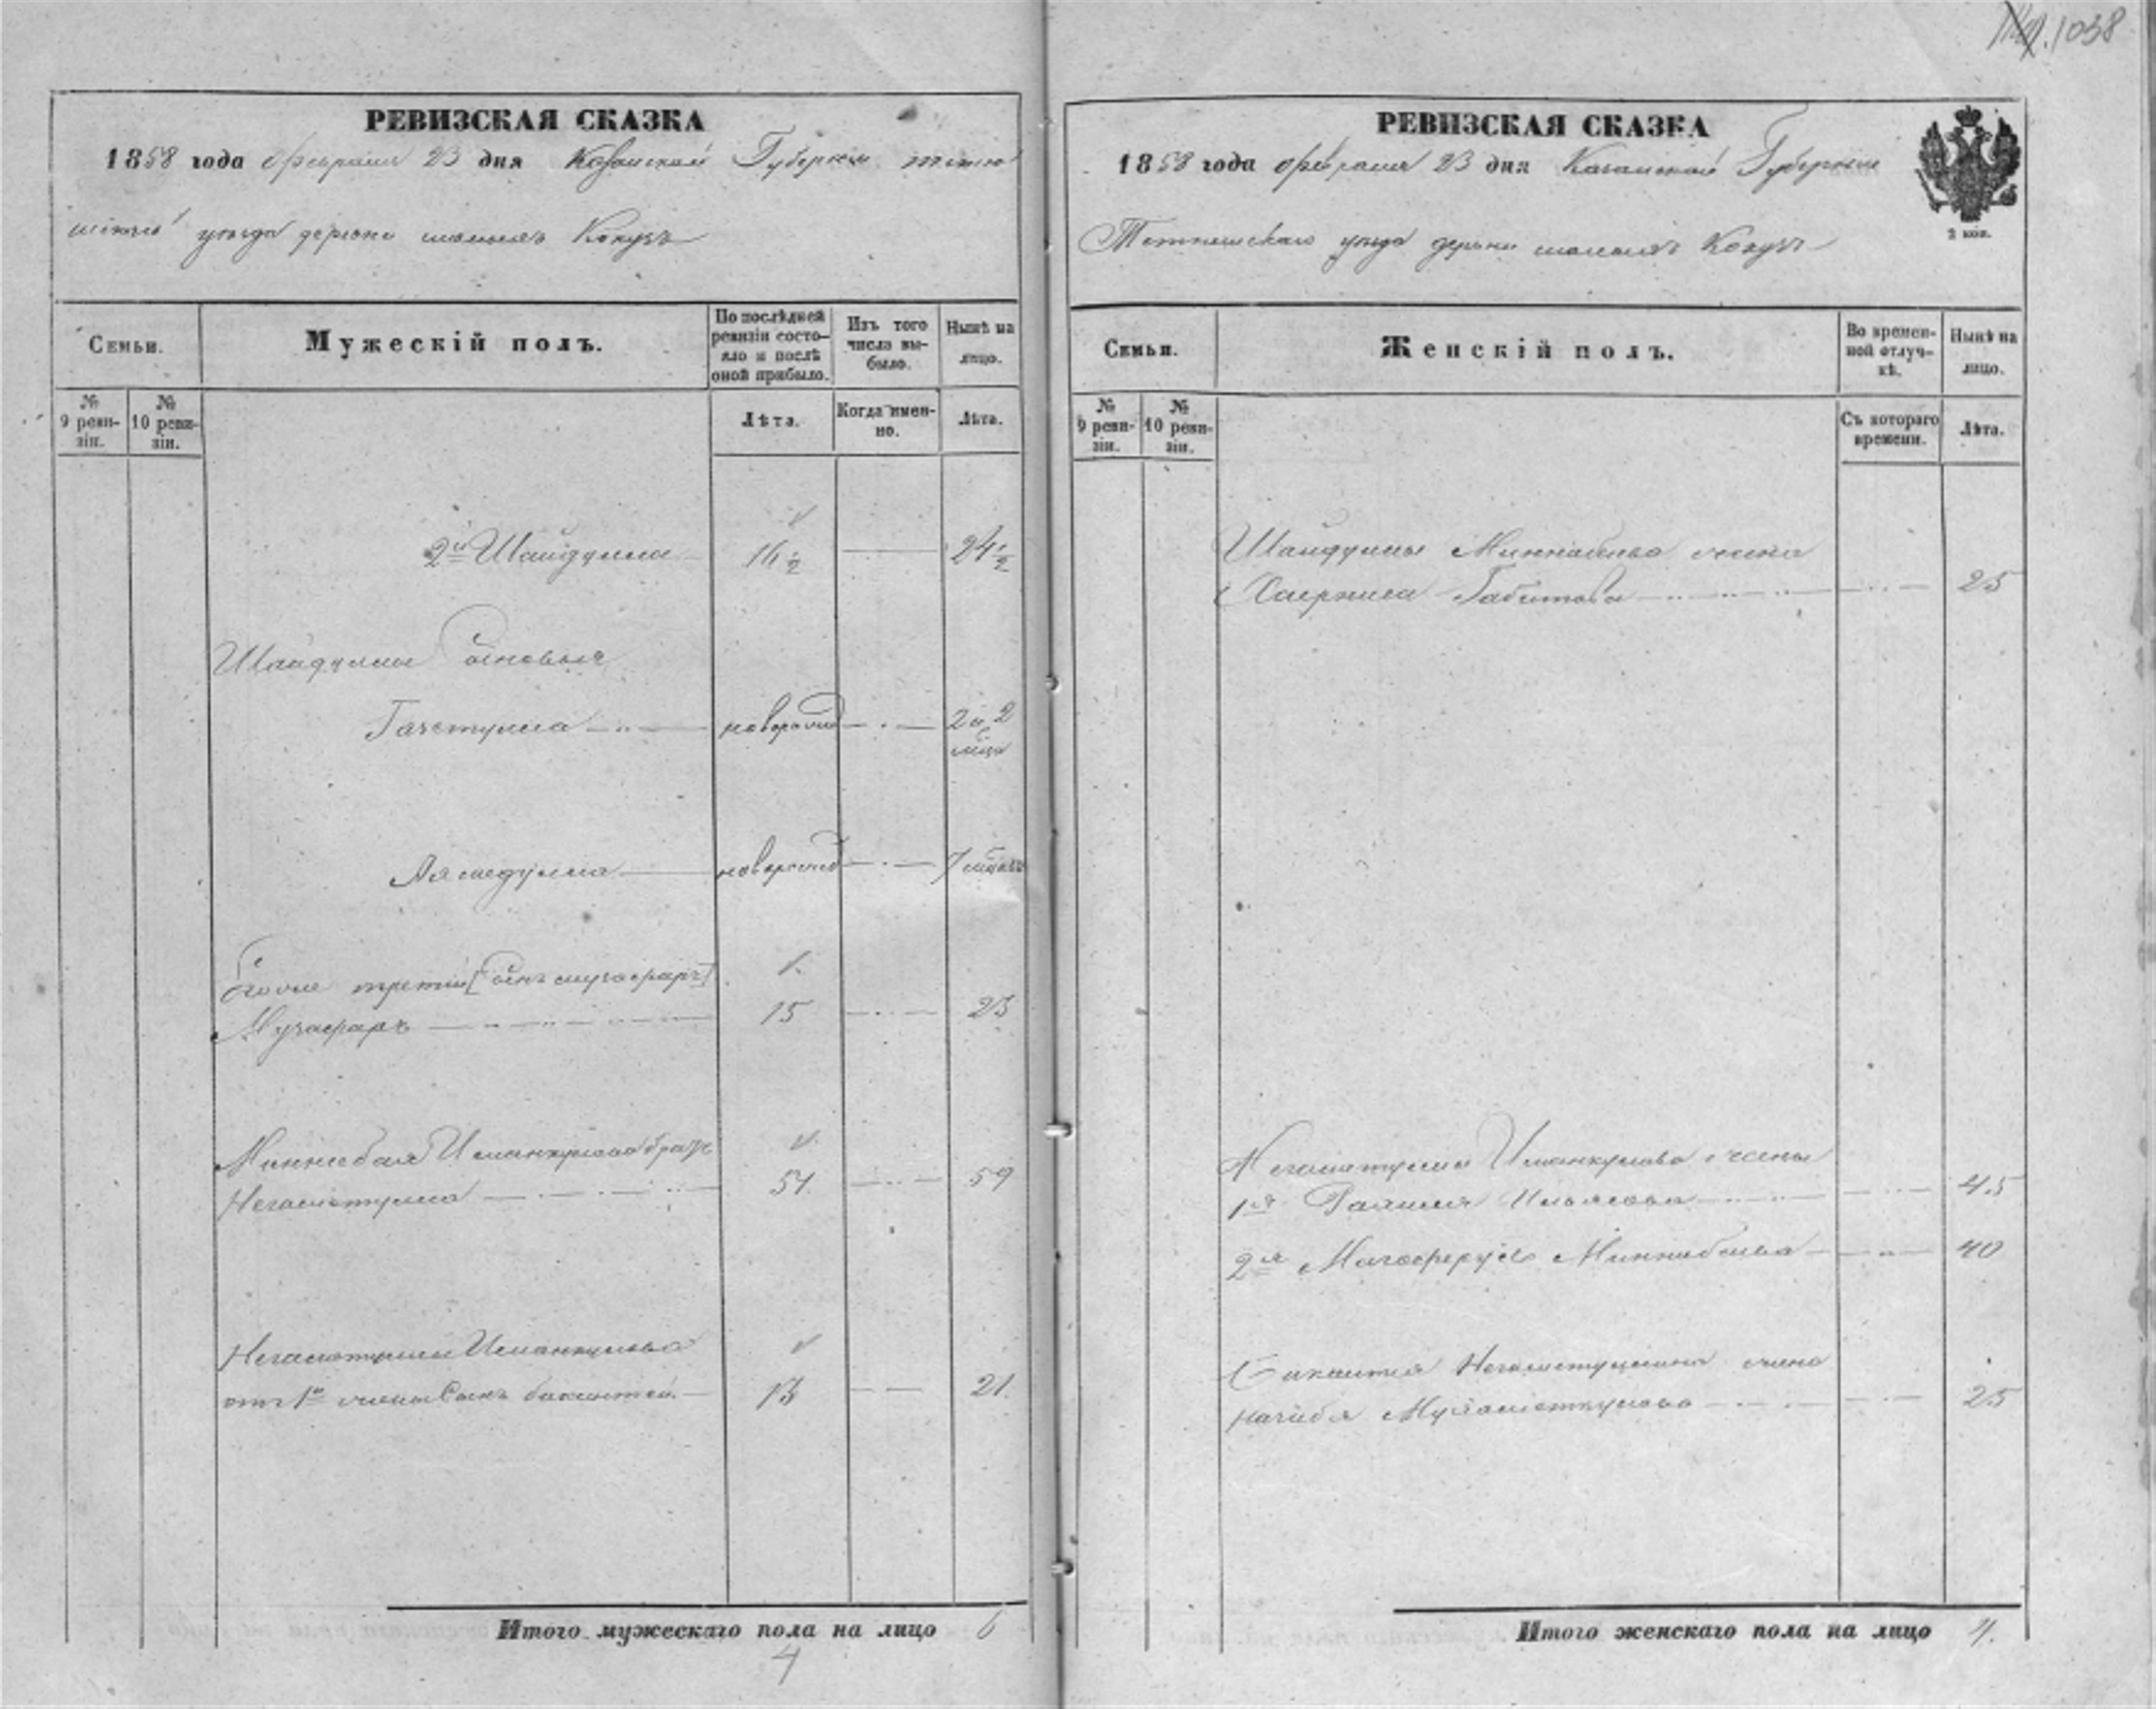 1038
РЕВИЗСКАЯ СКАЗКА
1858 года февраля 23 дня Казанской Губернии тетю
шскаго уѣзда деревни Кокузъ
Семьи.
Мужескій полъ.
По послѣдней ревизіи состояло и послѣ оной прибыло.
Изъ того числа выбыло.
Нынѣ на лицо.
№ 9 ревизіи.
№ 10 ревизіи.
Лѣта.
Когда именно.
Лѣта.
2й Шайдулла 16½ 24½
Шайдуллы Сыновья
новорожд 2 и 2
мѣся
новорожд 7 мѣсяц
третій [Сынъ
Музафаръ 15 23
Миннебая Иманкулова братъ
Негаметулла 51 59
Негаметуллы Иманкулова
отъ 1й жены Сынъ 13 21
Итого мужескаго пола на лицо 6
4
РЕВИЗСКАЯ СКАЗКА
1858 года февраля 23 дня Казанской Губернии
Тетюшскаго уѣзда деревни Кокузъ
2 коп.
Семьи.
Женскій полъ.
Во временной отлучкѣ.
Нынѣ на лицо.
№ 9 ревизіи.
№ 10 ревизіи.
Съ котораго времени.
Лѣта.
Шайдуллы Миннибаева жена
Хаерниса Габитова 25
Негаметуллы Иманкулова жены
1я Ильясова 45
2я Миннибаева 40
Негаметуллина жена
25
Итого женскаго пола на лицо 4.